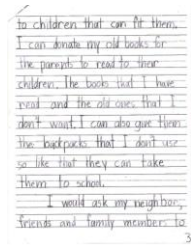 to children that can fit them.
I can donate my old books for
the parents to read to their
children. The books that I have
read and the old ones that I
don't want. I can also give them
the backpacks that I don't use
so like that they can take
them to school.
I would ask my neighbor,
friends and family members to
3